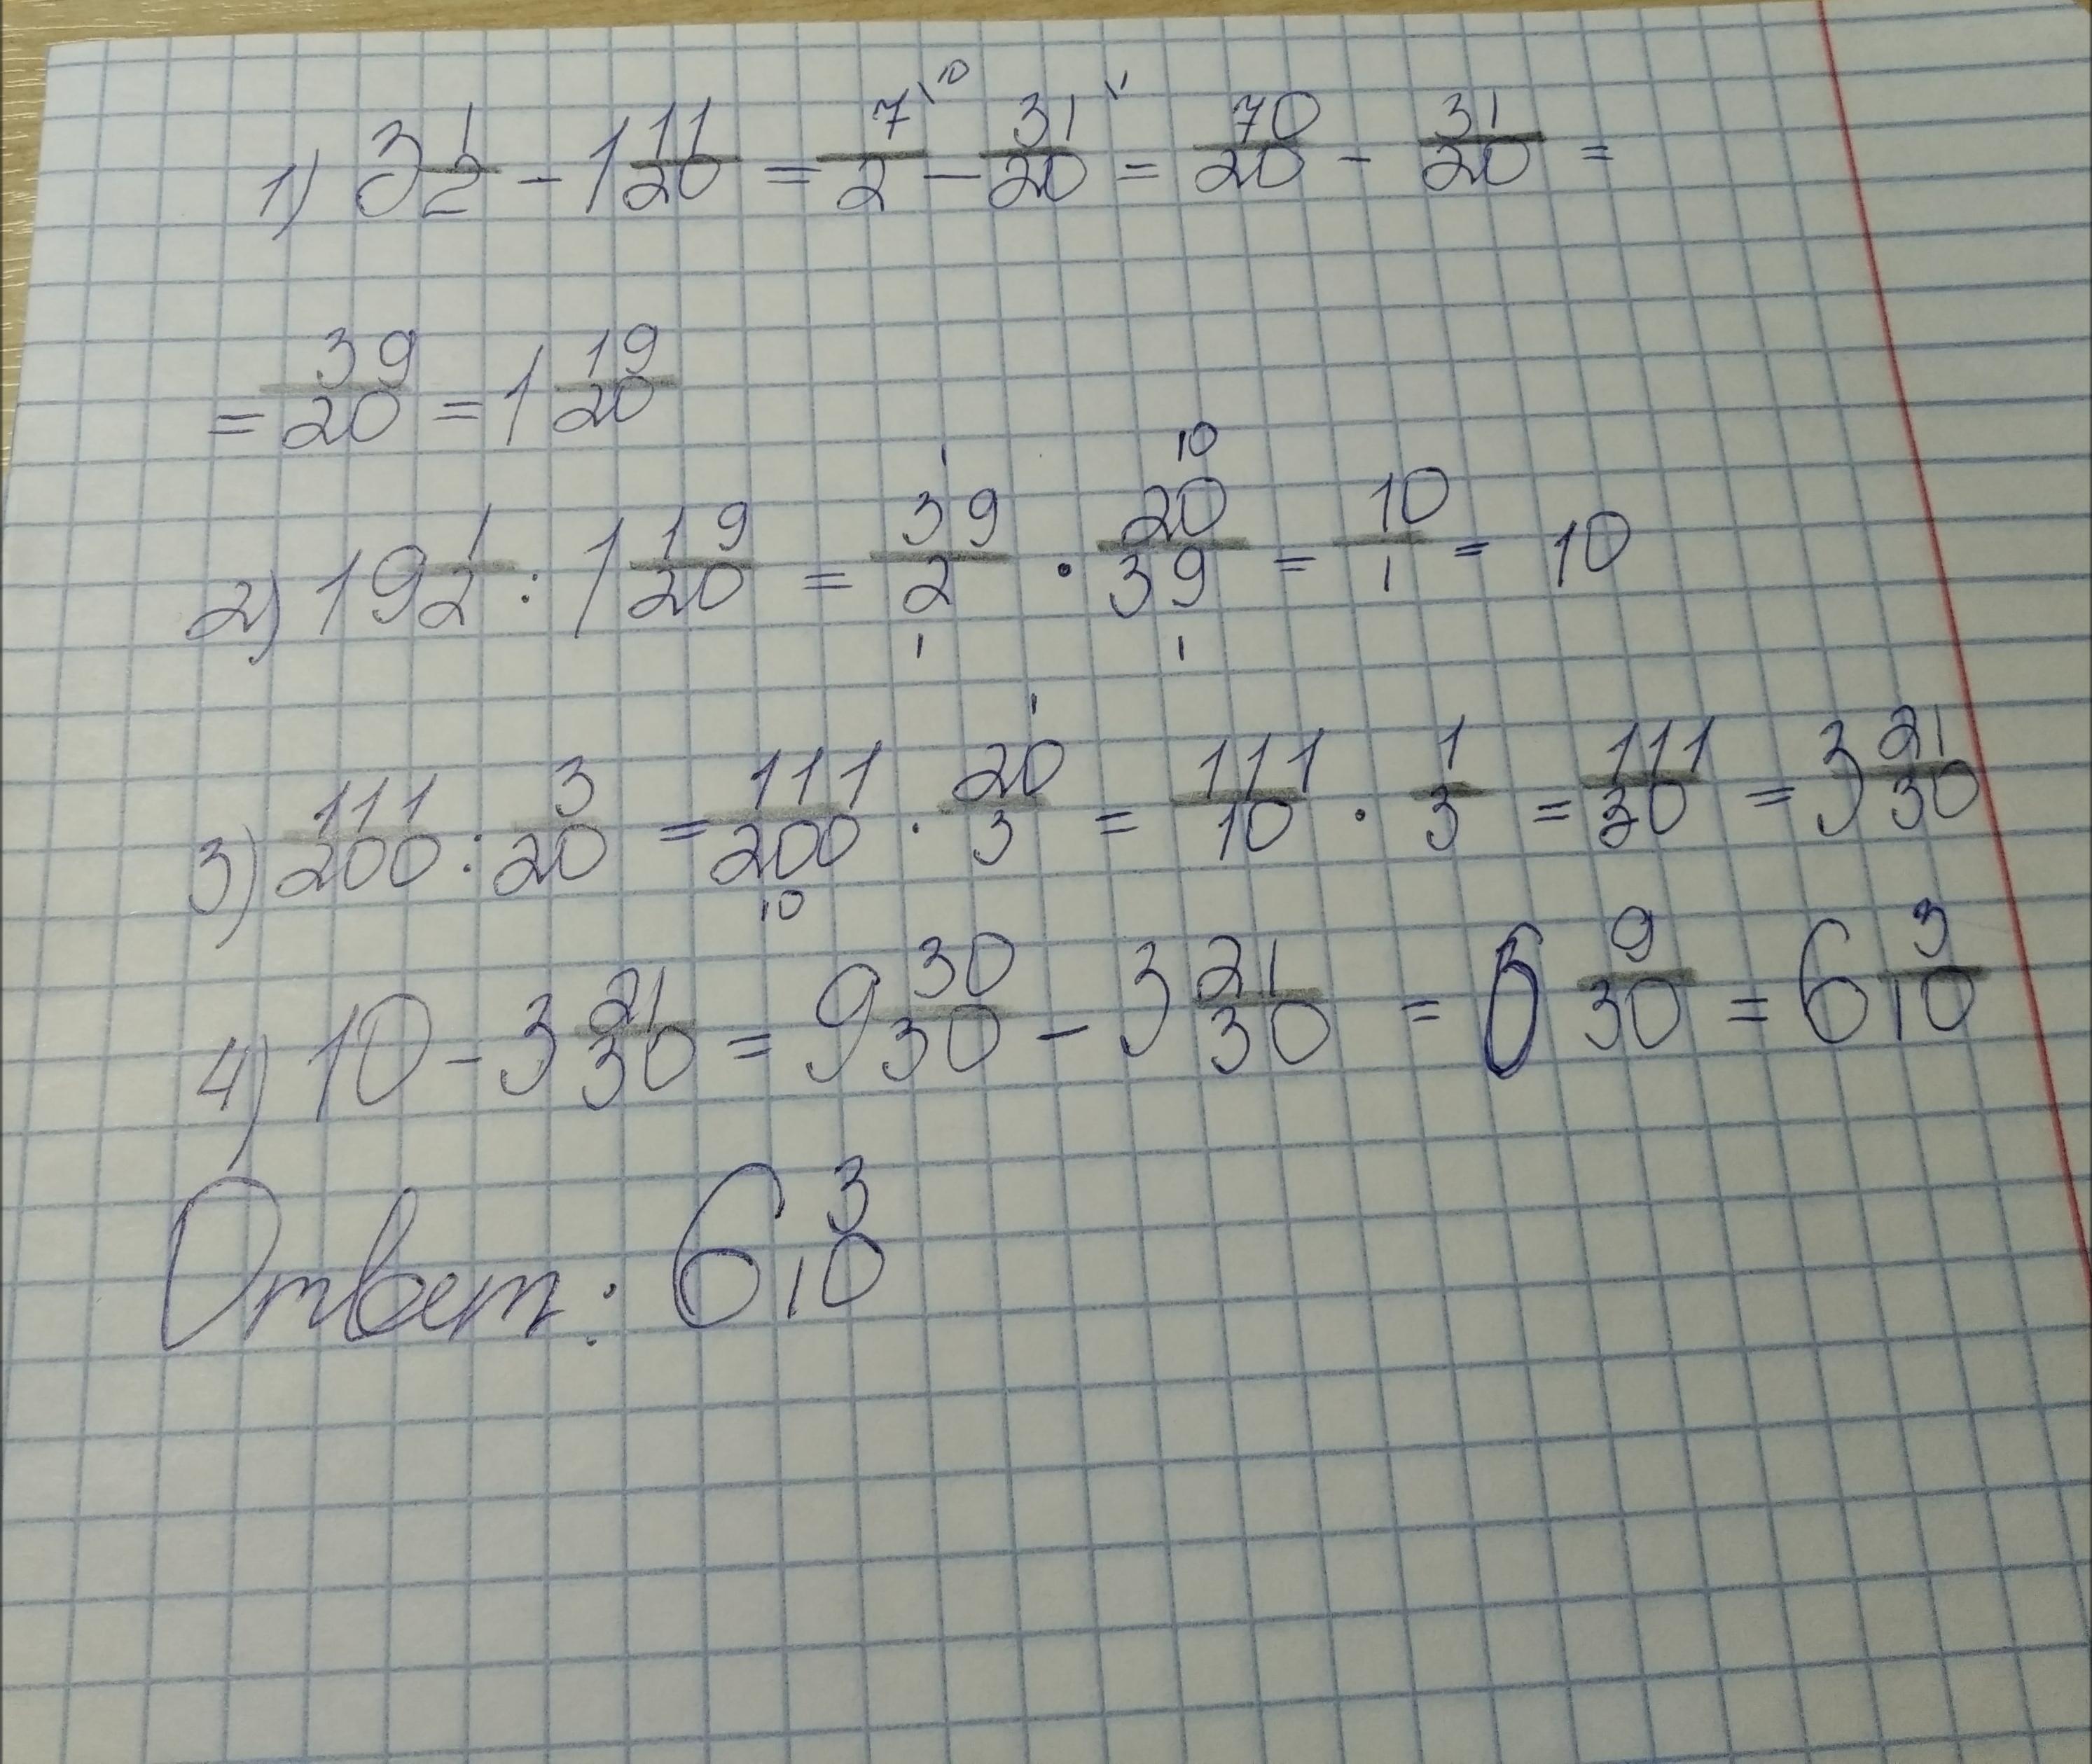 1) 3 1/2 - 1 11/20 = 7/2 \10 - 31/20 \1 = 70/20 - 31/20 =
= 39/20 = 1 19/20
2) 19 1/2 : 1 19/20 = 39/2 · 20/39 = 10/1 = 10
3) 111/200 : 3/20 = 111/200 · 20/3 = 111/10 · 1/3 = 111/30 = 3 21/30
4) 10 - 3 21/30 = 9 30/30 - 3 21/30 = 6 9/30 = 6 3/10
Ответ: 6 3/10